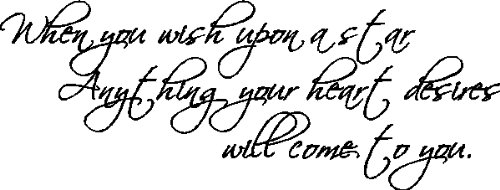 When you wish upon a star
Anything your heart desires
will come to you.